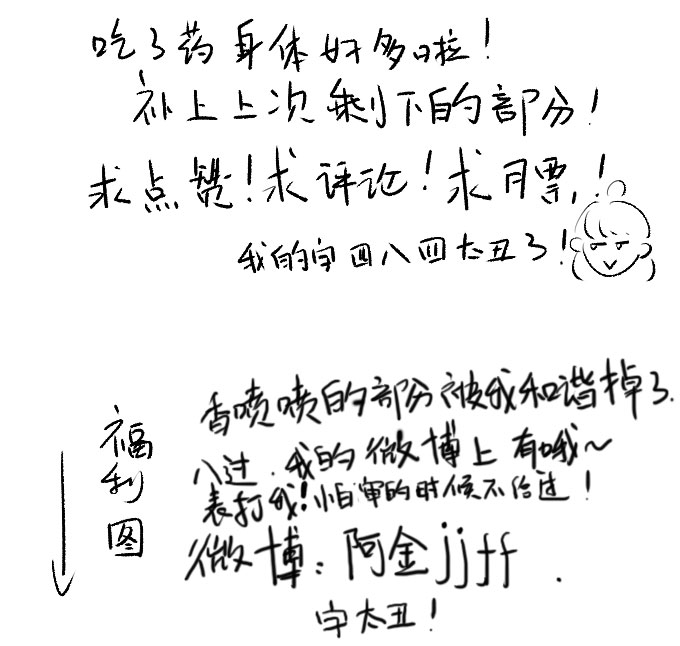 吃了药身体好多啦！
补上上次剩下的部分！
求点赞！求评论！求月票！
我的字四八四太丑了！
香喷喷的部分被我和谐掉了.
八过.我的微博上有哦～
表打我！怕审的时候不给过！
福利图
微博：阿金jjff.
字太丑！